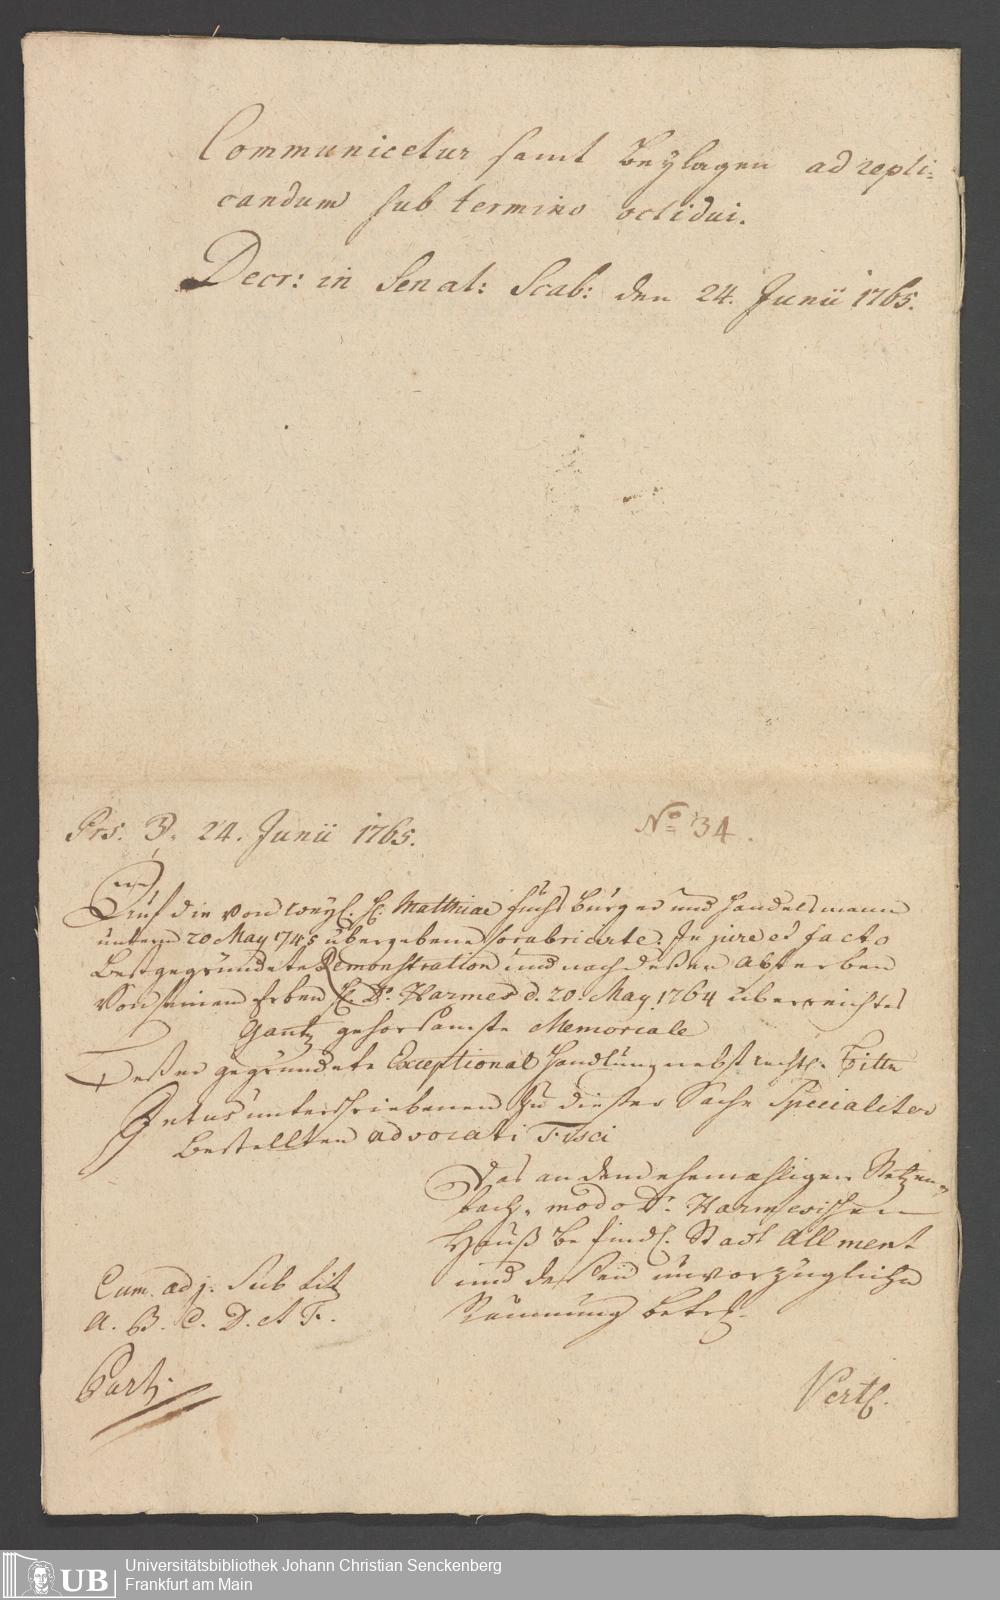 Communicetur samt Beylagen ad repli=
candum sub termino octidui.
Decr: in Senat: Scab: den 24. Junii 1765.
Prs. 24. Junii 1765.
No 34.
Auf die von weyl. H. Matthiae Fuchs Burger und Handelsmann
unterm 20 May 1745 übergebene so rubricirte: In jure et facto
Bestgegründete Demonstration und nach deßen Absterben
von seinen Erben H. Dr. Harmes d. 20. May 1764 überreichtes
Gantz gehorsamste Memoriale
Deßer gegründete Exceptional Handlung nebst rechtl. Bitte
Intus unterschriebenen zu dießer Sache Specialiter
Bestellten advocati Fisci
Das an dem ehemahligen
bach, modo Dr. Harmesischen
Hauß befindl. Stadt Allment
und deßen unvorzügliche
Räumung betrf.
Cum. adj. Sub Lit
A. B. C. D. et F.